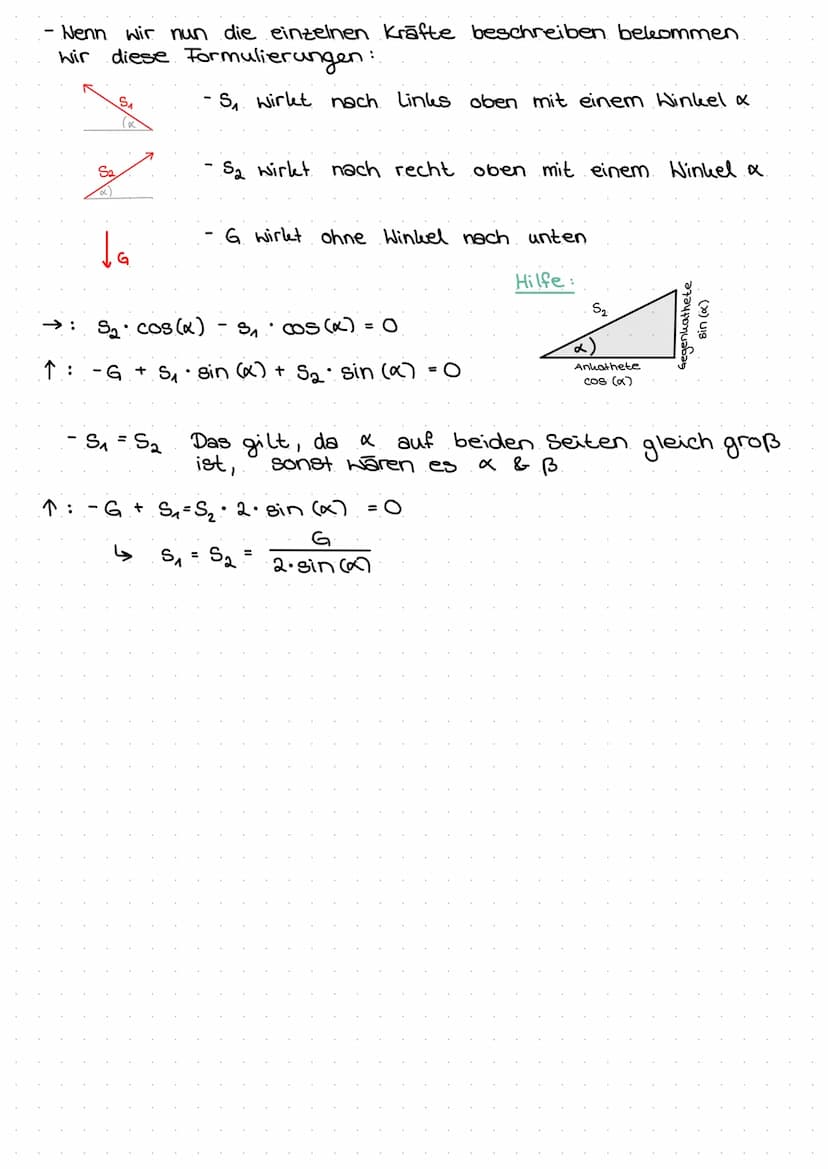 - Wenn wir nun die einzelnen Kräfte beschreiben bekommen
wir diese Formulierungen:
S₁
(α
- S₁ wirkt nach Links oben mit einem Winkel α
S₂
α)
- S₂ wirkt nach recht oben mit einem Winkel α
G
- G wirkt ohne Winkel nach unten
Hilfe:
S₂
α)
Ankathete
cos (α)
Gegenkathete
sin (α)
→: S₂ · cos(α) - S₁ · cos(α) = 0
↑: -G + S₁ · sin (α) + S₂ · sin (α) = 0
- S₁ = S₂ Das gilt, da α auf beiden Seiten gleich groß
ist, sonst wären es α & β
↑: -G + S₁=S₂ · 2 · sin (α) = 0
↳ S₁ = S₂ = G
2·sin(α)